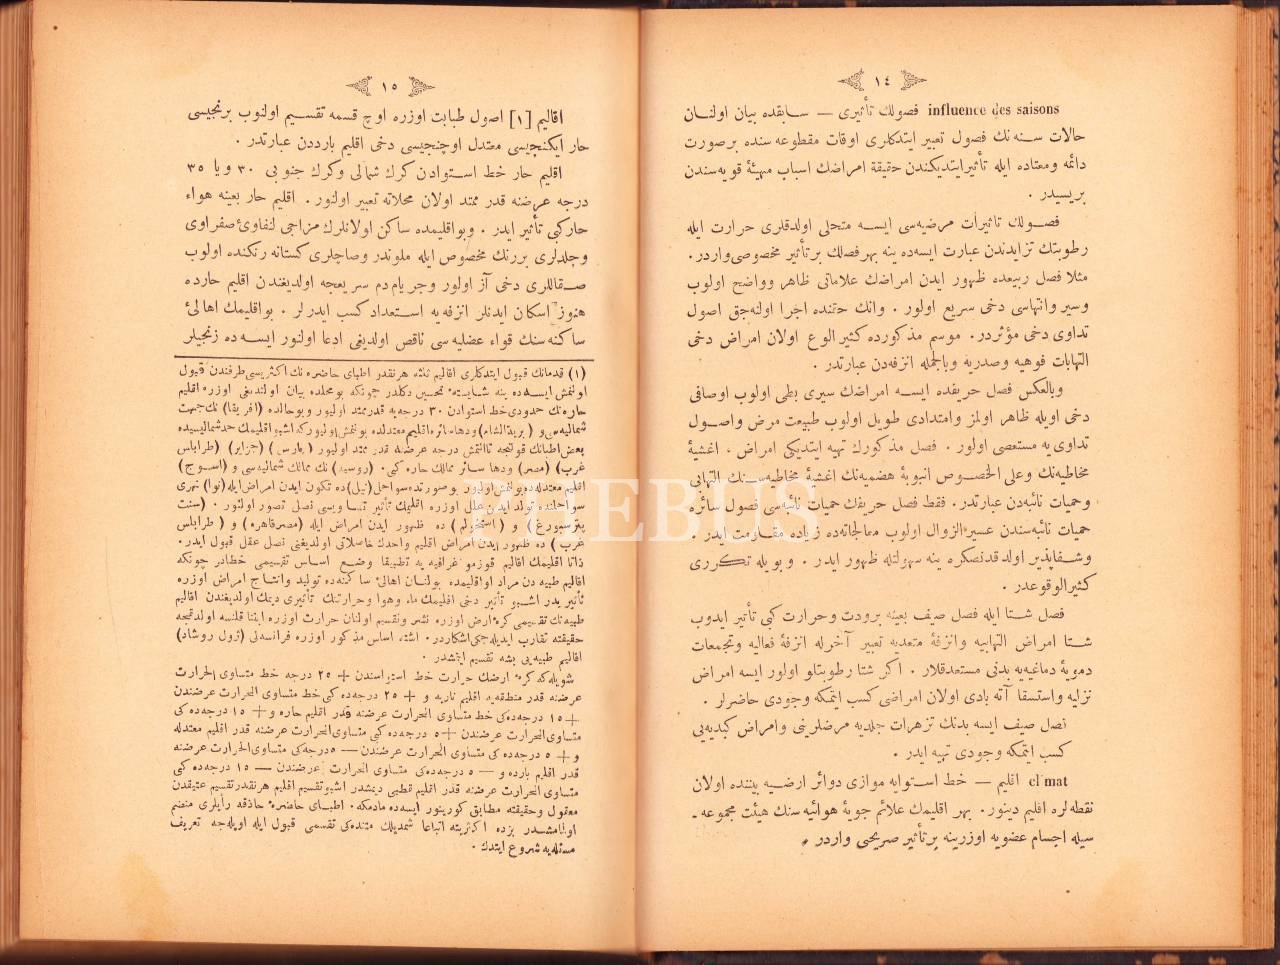 ١٤
influence des saisons فصولك تأثیری — سابقده بیان اولنان
حالات سنه نك فصول تعبیر ایتدكلری اوقات مقطوعه سنده بر صورت
دائمه ومعتاده ایله تأثیر ایتدیكندن حقیقة امراضك اسباب مهیئهٔ قویه سندن
بریسیدر .
فصولك تاثیرات مرضیه سی ایسه متحلی اولدقلری حرارت ایله
رطوبتك تزایدندن عبارت ایسه ده ینه بهر فصلك بر تأثیر مخصوصی واردر .
مثلا فصل ربیعده ظهور ایدن امراضك علاماتی ظاهر وواضح اولوب
وسیر وانتهاسی دخی سریع اولور . وانك حقنده اجرا اولنه جق اصول
تداوی دخی مؤثردر . موسم مذكورده كثیر الوقوع اولان امراض دخی
التهابات فوهیه وصدریه وبالجمله انزفه دن عبارتدر .
وبالعكس فصل خریفده ایسه امراضك سیری بطی اولوب اوصافی
دخی اویله ظاهر اولمز وامتدادی طویل اولوب طبیعت مرض واصول
تداوی یه مستعصی اولور . فصل مذكورك تهیه ایتدیكی امراض . اغشیهٔ
مخاطیه نك وعلی الخصوص انبوبهٔ هضمیه نك اغشیهٔ مخاطیه سنك التهابی
وحمیات نائبه دن عبارتدر . فقط فصل خریفك حمیات نائبه سی فصول سائره
حمیات نائبه سندن عسیر الزوال اولوب معالجاته ده زیاده مقاومت ایدر .
وشفاپذیر اولدقدنصكره ینه سهولتله ظهور ایدر . وبویله تكرری
كثیر الوقوعدر .
فصل شتا ایله فصل صیف بعینه برودت وحرارت كبی تأثیر ایدوب
شتا امراض التهابیه وانزفهٔ متعدیه تعبیر آخرله انزفهٔ فعالیه وتجمعات
دمویهٔ دماغیه یه بدنی مستعد قلار . اكر شتا رطوبتلو اولور ایسه امراض
نزلیه واستسقا آته بادی اولان امراضی كسب ایتمكه وجودی حاضرلر .
فصل صیف ایسه بدنك تزهرات جلدیه مرضلرینی وامراض كبدیه یی
كسب ایتمكه وجودی تهیه ایدر .
cl mat اقلیم — خط استوایه موازی دوائر ارضیه بیننده اولان
نقطه لره اقلیم دینور . بهر اقلیمك علائم جویهٔ هوائیه سنك هیئت مجموعه ـ
سیله اجسام عضویه اوزرینه بر تأثیر صریحی واردر .
١٥
اقالیم [١] اصول طبابت اوزره اوچ قسمه تقسیم اولنوب برنجیسی
حار ایكنجیسی معتدل اوچنجیسی دخی اقلیم بارددن عبارتدر .
اقلیم حار خط استوادن كرك شمالی وكرك جنوبی ٣٠ ویا ٣٥
درجه عرضنه قدر ممتد اولان محلاته تعبیر اولنور . اقلیم حار بعینه هواء
حار كبی تأثیر ایدر . وبو اقلیمده ساكن اولانلرك مزاجی لنفاوئ صفراوی
وجلدلری بر رنك مخصوص ایله ملوندر وصاچلری كستانه رنكنده اولوب
صقاللری دخی آز اولور وجریام دم سریعجه اولدیغندن اقلیم حارده
هنوز اسكان ایدنلر انزفه یه استعداد كسب ایدرلر . بو اقلیمك اهالئ
ساكنه سنك قواء عضلیه سی ناقص اولدیغی ادعا اولنور ایسه ده زنجیلر
(١) قدمانك قبول ایتدكلری اقالیم ثلثه هر نقدر اطبای حاضره نك اكثریسی طرفندن قبول
اولنمش ایسه ده ینه شایستهٔ تحسین دكلدر چونكه بو محلده بیان اولندیغی اوزره اقلیم
حاره نك حدودی خط استوادن ٣٠ درجه یه قدر ممتد اولیور وبو حالده (افریقا) نك جهت
شمالیه سی و (بریة الشام) ودها سائره اقلیم معتدلده بولنمش اولیور كه اشبو اقلیمك حد شمالیسیده
بعض اطبانك قولنجه تا التمش درجه عرضنه قدر ممتد اولیور (پارس) (جزایر) (طرابلس
غرب) (مصر) ودها سائر ممالك حاره كبی . (روسیه) نك ممالك شمالیه سی و (اسوج)
اقلیم معتدله ده بولنمش اولیور بو صورتده سواحل (نیل) ده تكون ایدن امراض ایله (نوا) نهری
سواحلنده تولد ایدن علل اوزره اقلیمك تأثیر تساویسی نصل تصور اولنور . (سنت
پترسبورغ) و (استقهولم) ده ظهور ایدن امراض ایله (مصر قاهره) و (طرابلس
غرب) ده ظهور ایدن امراض اقلیم واحدك خاصلاتی اولدیغنی نصل عقل قبول ایدر .
ذاتا اقلیمك اقالیم قوزموغرافیه یه تطبیقا وضع اساس تقسیمی خطادر چونكه
اقالیم طبیه دن مراد او اقلیمده بولنان اهالئ ساكنه ده تولید وانتاج امراض اوزره
تأثیریدر اشبو تأثیر دخی اقلیمك ماء وهوا وحرارتنك تأثیری دیمك اولدیغندن اقالیم
طبیه نك تقسیمی كرهٔ ارض اوزره نشر وتقسیم اولنان حرارت اوزره ایفا قلنسه اولدقجه
حقیقته تقارب ایدیله جكی اشكاردر . اشته اساس مذكور اوزره فرانسه لی (ژول روشاد)
اقالیم طبیه یی بشه تقسیم ایتمشدر .
شویله كه كرهٔ ارضك حرارت خط استواسندن + ٢٥ درجه خط متساوی الحرارت
عرضنه قدر منطقه یه اقلیم ناریه و + ٢٥ درجه ده كی خط متساوی الحرارت عرضندن
+ ١٥ درجه ده كی خط متساوی الحرارت عرضنه قدر اقلیم حاره و + ١٥ درجه ده كی
متساوی الحرارت عرضندن + ٥ درجه ده كی متساوی الحرارت عرضنه قدر اقلیم معتدله
و + ٥ درجه ده كی متساوی الحرارت عرضندن — ٥ درجه كی متساوی الحرارت عرضنه
قدر اقلیم بارده و — ٥ درجه ده كی متساوی الحرارت عرضندن — ١٥ درجه ده كی
متساوی الحرارت عرضنه قدر اقلیم قطبی دیمشدر اشبو تقسیم اقلیم هر نقدر تقسیم عتیقدن
معقول وحقیقته مطابق كورینور ایسه ده مادمكه اطبای حاضرهٔ حاذقه رأیلری منضم
اولمامشدر بزده اكثریته اتباعا شمدیلك متنده كی تقسیمی قبول ایله اویله جه تعریف
مسئله یه شروع ایتدك .
PHEBUS